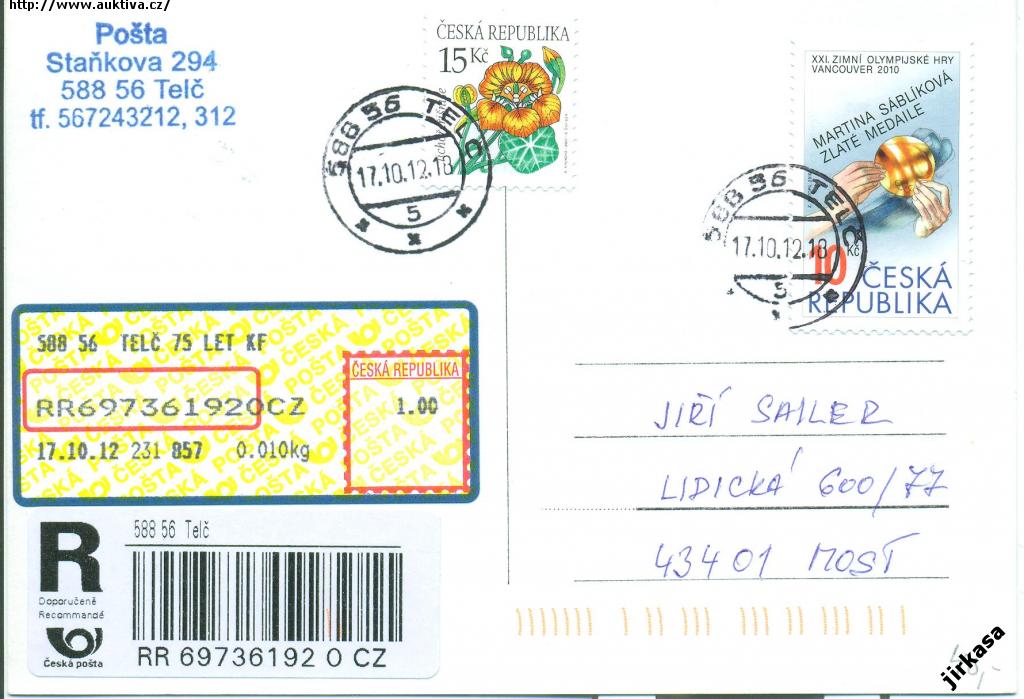 http://www.auktiva.cz/
Pošta
Staňkova 294
588 56 Telč
tf. 567243212, 312
ČESKÁ REPUBLIKA
15 Kč
588 56 TELČ
17.10.12.18
5
XXI. ZIMNÍ OLYMPIJSKÉ HRY
VANCOUVER 2010
MARTINA SÁBLÍKOVÁ
ZLATÉ MEDAILE
10 Kč
ČESKÁ
REPUBLIKA
588 56 TELČ
17.10.12.18
5
588 56 TELČ 75 LET KF
RR697361920CZ
17.10.12 231 857 0.010kg
ČESKÁ REPUBLIKA
1.00
JIŘÍ SAILER
LIDICKÁ 600/77
43401 MOST
R
Doporučeně
Recommandé
Česká pošta
588 56 Telč
RR 69736192 0 CZ
jirkasa